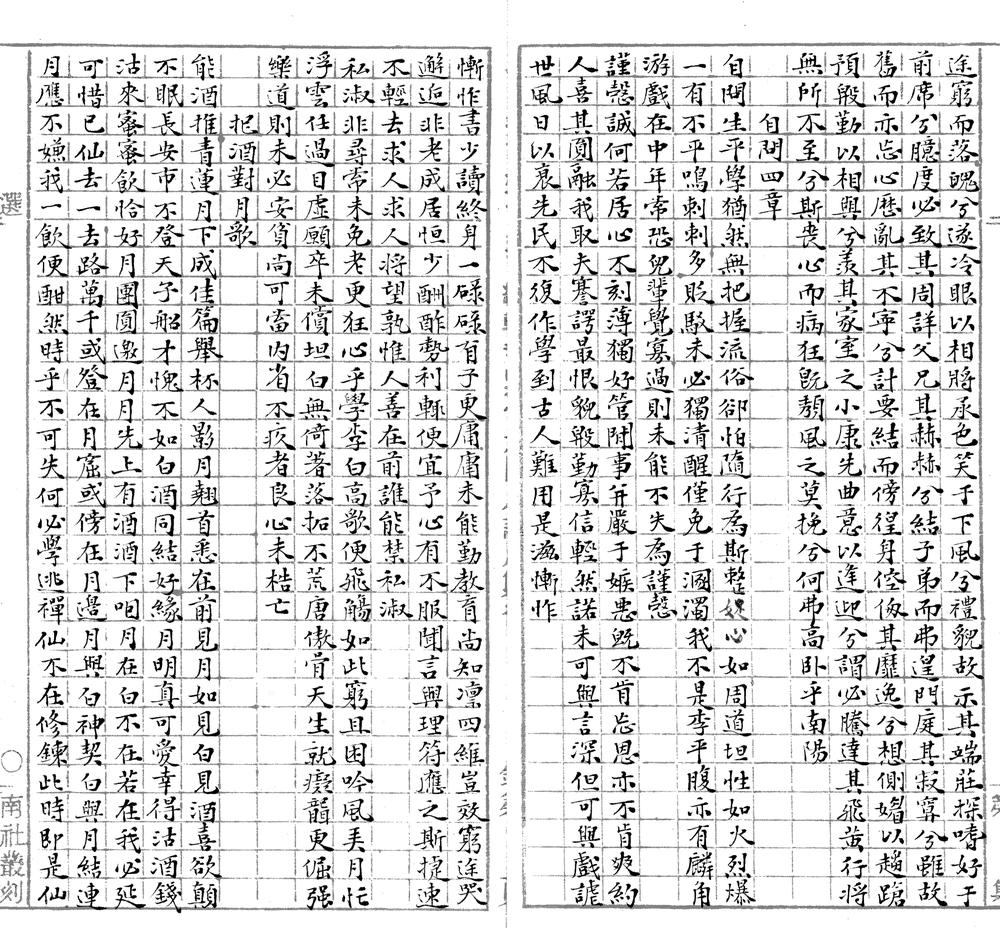 途窮而落魄兮遂冷眼以相將承色笑于下風兮禮貌故示其端莊探嗜好于
前席兮臆度必致其周詳父兄其赫赫兮結子弟而弗遑門庭其寂寞兮雖故
舊而亦忘心歷亂其不寧兮計要結而傍徨身倥傯其靡逸兮想側媚以趨蹌
預殷勤以相與兮羨其家室之小康先曲意以逢迎兮謂必騰達其飛黃行將
無所不至兮斯喪心而病狂既頹風之莫挽兮何弗高卧乎南陽
自問四章
自問生平學猶然無把握流俗卻怕隨行為斯整娖心如周道坦性如火烈爆
一有不平鳴刺刺多貶駮未必獨清醒僅免于溷濁我不是李平腹亦有麟角
游戲在中年常恐兒輩覺寡過則未能不失為謹愨
謹愨誠何若居心不刻薄獨好管閒事弁嚴于嫉惡既不肯忘恩亦不肯爽約
人喜其圓融我取夫謇諤最恨貌殷勤寡信輕然諾未可與言深但可與戲謔
世風日以衰先民不復作學到古人難用是滋慚怍
慚怍書少讀終身一碌碌育子更庸庸未能勤教育尚知凜四維豈效窮途哭
邂逅非老成居恒少酬酢勢利轉便宜予心有不服聞言與理符應之斯捷速
不輕去求人求人將望孰惟人善在前誰能禁私淑
私淑非尋常未免老更狂心乎學李白高歌便飛觴如此窮且困吟風弄月忙
浮雲任過目虛願卒未償坦白無倚著落拓不荒唐傲骨天生就癡韻更倔强
樂道則未必安貧尚可當內省不疚者良心未梏亡
把酒對月歌
能酒推青蓮月下成佳篇舉杯人影月翹首悉在前見月如見白見酒喜欲顛
不眠長安市不登天子船才愧不如白酒同結好緣月明真可愛幸得沽酒錢
沽來蜜蜜飲恰好月團圓邀月月先上有酒酒下咽月在白不在若在我必延
可惜已仙去一去路萬千或登在月窟或傍在月邊月與白神契白與月結連
月應不嫌我一飲便酣然時乎不可失何必學逃禪仙不在修鍊此時即是仙
選
南社叢刻